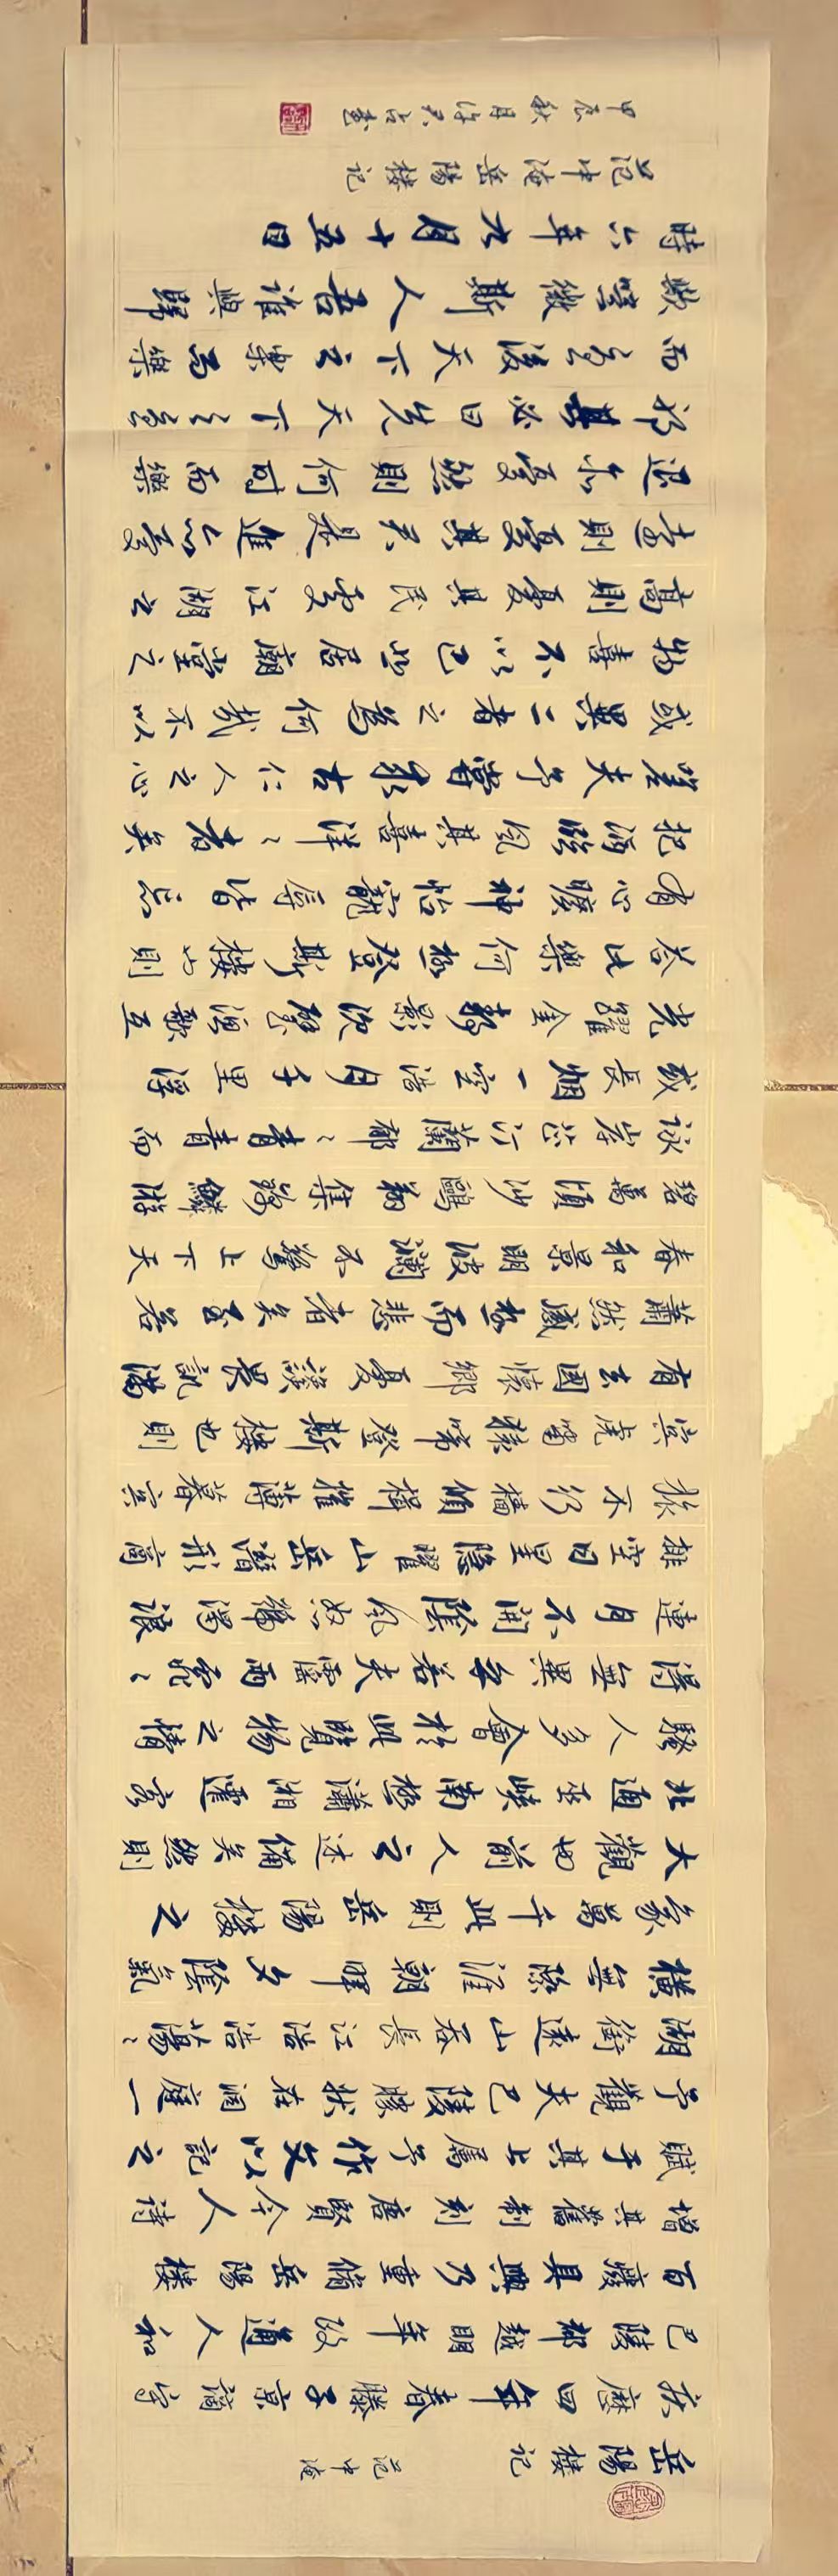 岳陽樓記 范仲淹
慶歷四年春滕子京謫守
巴陵郡越明年政通人和
百廢具興乃重脩岳陽樓
增其舊制刻唐賢今人詩
賦于其上屬予作文以記之
予觀夫巴陵勝狀在洞庭一
湖銜遠山吞長江浩浩蕩〻
橫無際涯朝暉夕陰氣
象萬千此則岳陽樓之
大觀也前人之述備矣然則
北通巫峽南極瀟湘遷客
騷人多會於此覽物之情
得無異乎若夫霪雨霏〻
連月不開陰風怒號濁浪
排空日星隱曜山岳潛形商
旅不行檣傾楫摧薄暮冥
冥虎嘯猿啼登斯樓也則
有去國懷鄉憂讒畏譏滿
蕭然感極而悲者矣至若
春和景明波瀾不驚上下天
碧萬頃沙鷗翔集錦鱗游
泳岸芷汀蘭郁〻青青而
或長烟一空皓月千里浮
光躍金靜影沉璧漁歌互
答此樂何極登斯樓也則
有心曠神怡寵辱皆忘
把酒臨風其喜洋〻者矣
嗟夫予嘗求古仁人之心
或異二者之為何哉不以
物喜不以己悲居廟堂之
高則憂其民處江湖之
遠則憂其君是進亦憂
退亦憂然則何時而樂
耶其必曰先天下之憂
而憂後天下之樂而樂
歟噫微斯人吾誰與歸
時六年九月十五日
范仲淹岳陽樓記
甲辰秋月 書